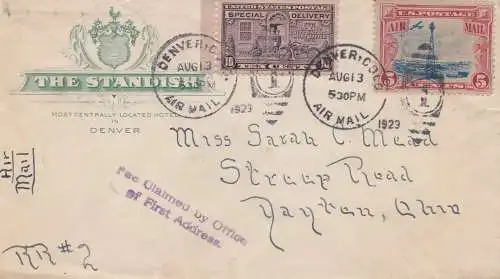 THE STANDISH
MOST CENTRALLY LOCATED HOTEL
IN
DENVER
UNITED STATES POSTAGE
SPECIAL DELIVERY
10
U.S. POSTAGE
AIR MAIL
5 5
DENVER, COLO.
AUG 13
PM
AIR MAIL
1929
DENVER, COLO.
AUG 13
530 PM
AIR MAIL
1929
Air
Mail
Miss Sarah C. Mead
Stroop Road
Dayton, Ohio
Fee Claimed by Office
of First Address.
RR#2